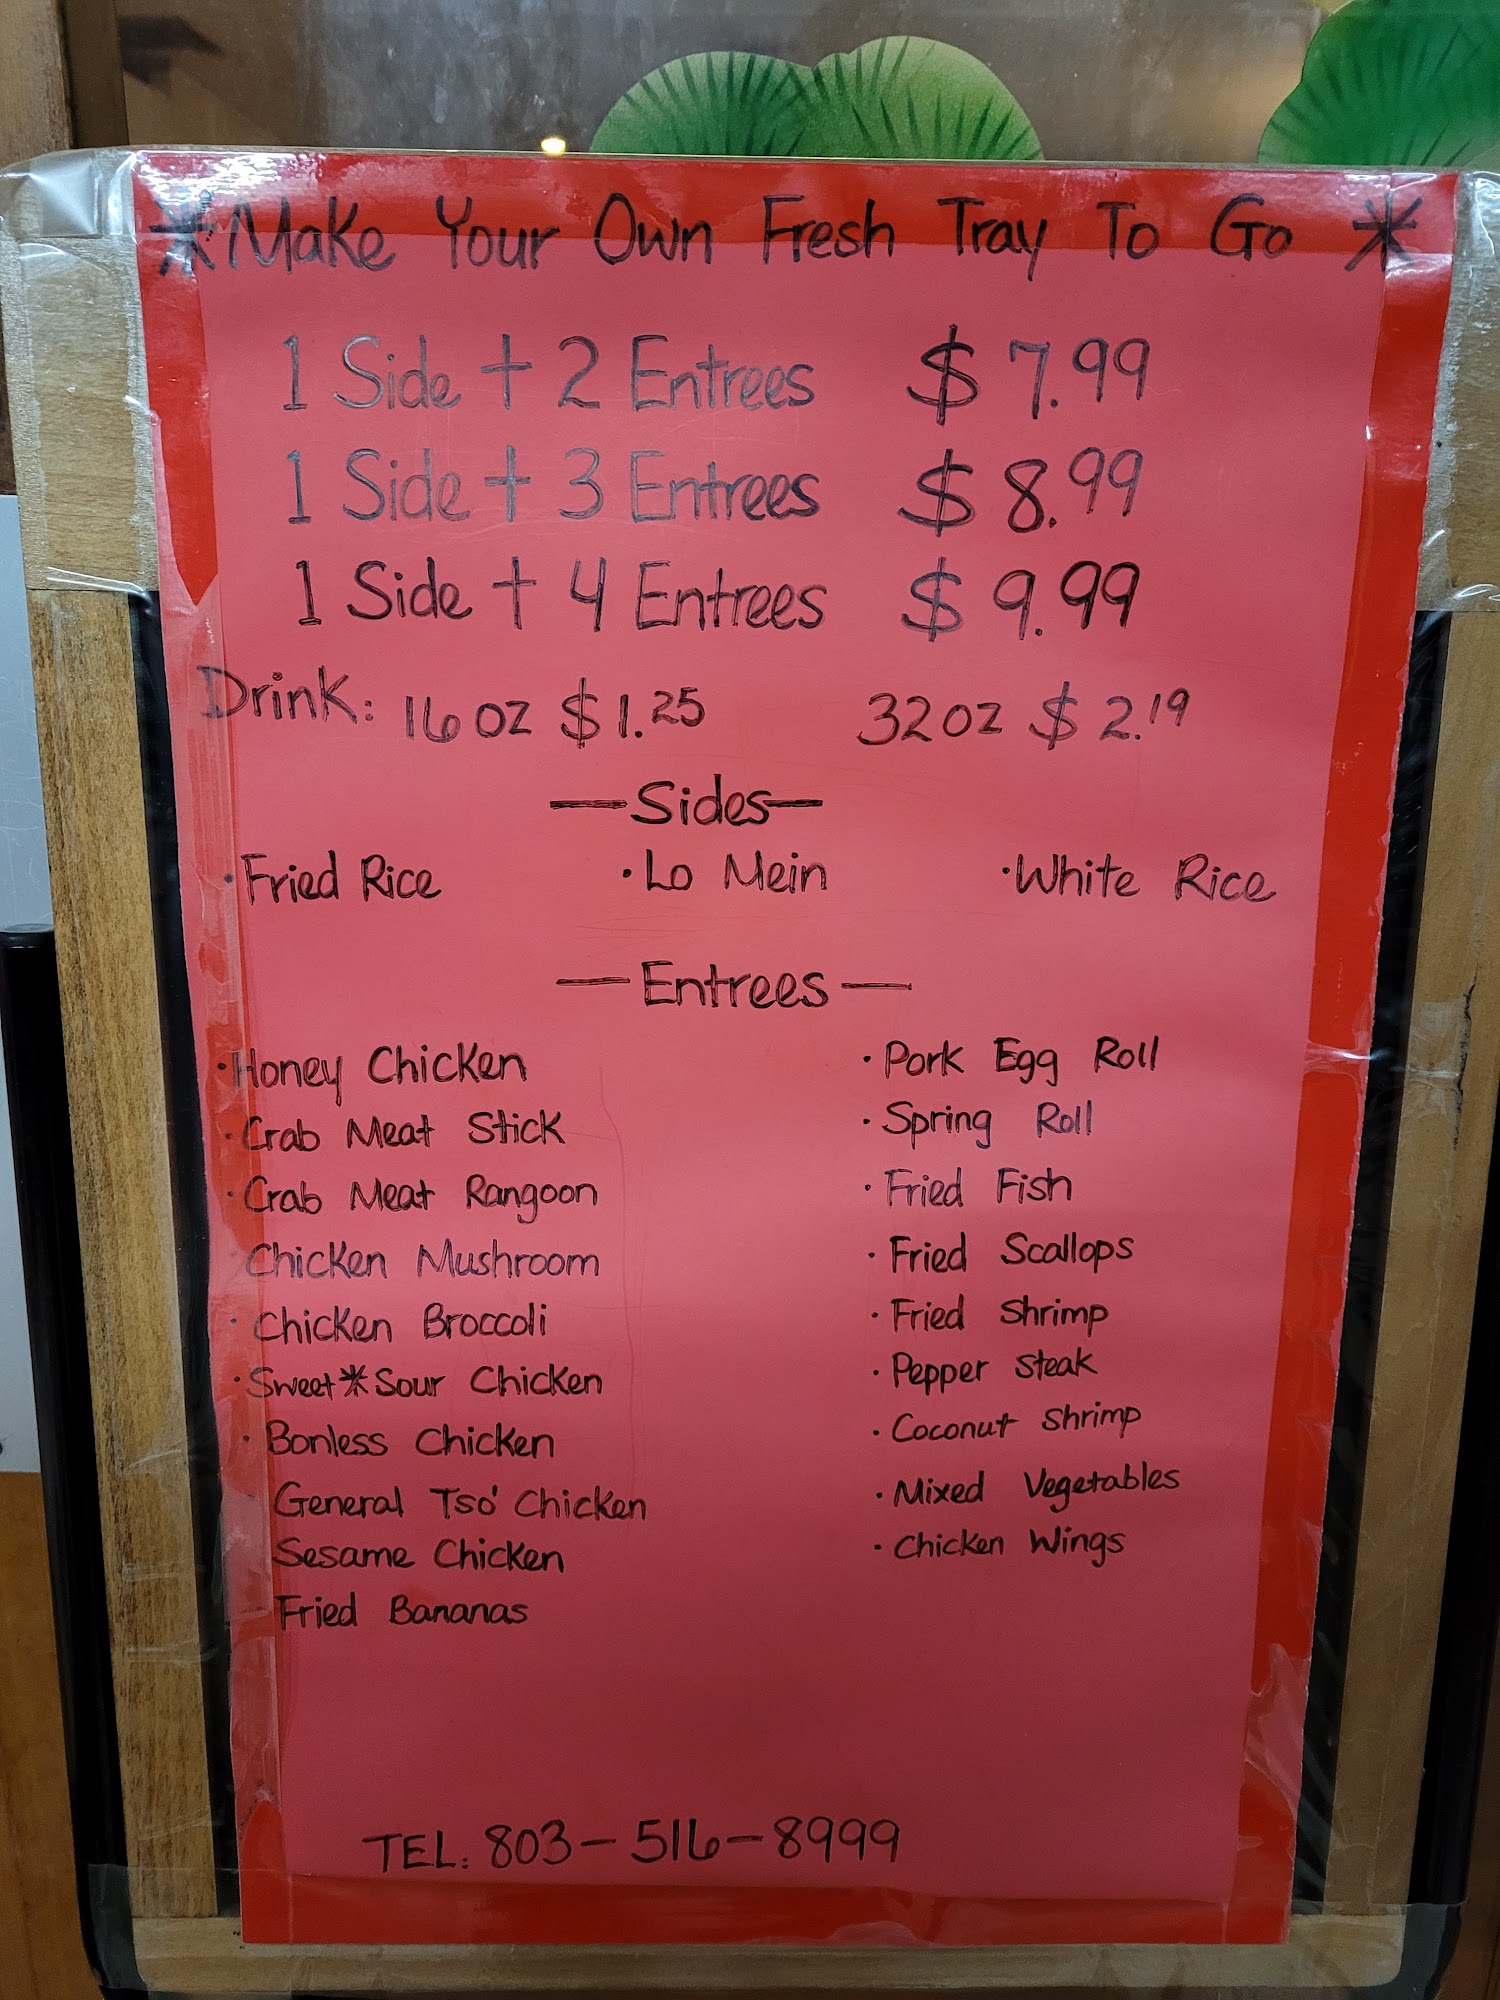 *Make Your Own Fresh Tray To Go *
1 Side + 2 Entrees $7.99
1 Side + 3 Entrees $8.99
1 Side + 4 Entrees $9.99
Drink: 16oz $1.25 32oz $2.19
—Sides—
·Fried Rice ·Lo Mein ·White Rice
—Entrees—
·Honey Chicken
·Crab Meat Stick
·Crab Meat Rangoon
Chicken Mushroom
·Chicken Broccoli
·Sweet*Sour Chicken
·Bonless Chicken
General Tso' Chicken
Sesame Chicken
Fried Bananas
·Pork Egg Roll
·Spring Roll
·Fried Fish
·Fried Scallops
·Fried Shrimp
·Pepper Steak
·Coconut Shrimp
·Mixed Vegetables
·Chicken Wings
TEL: 803-516-8999